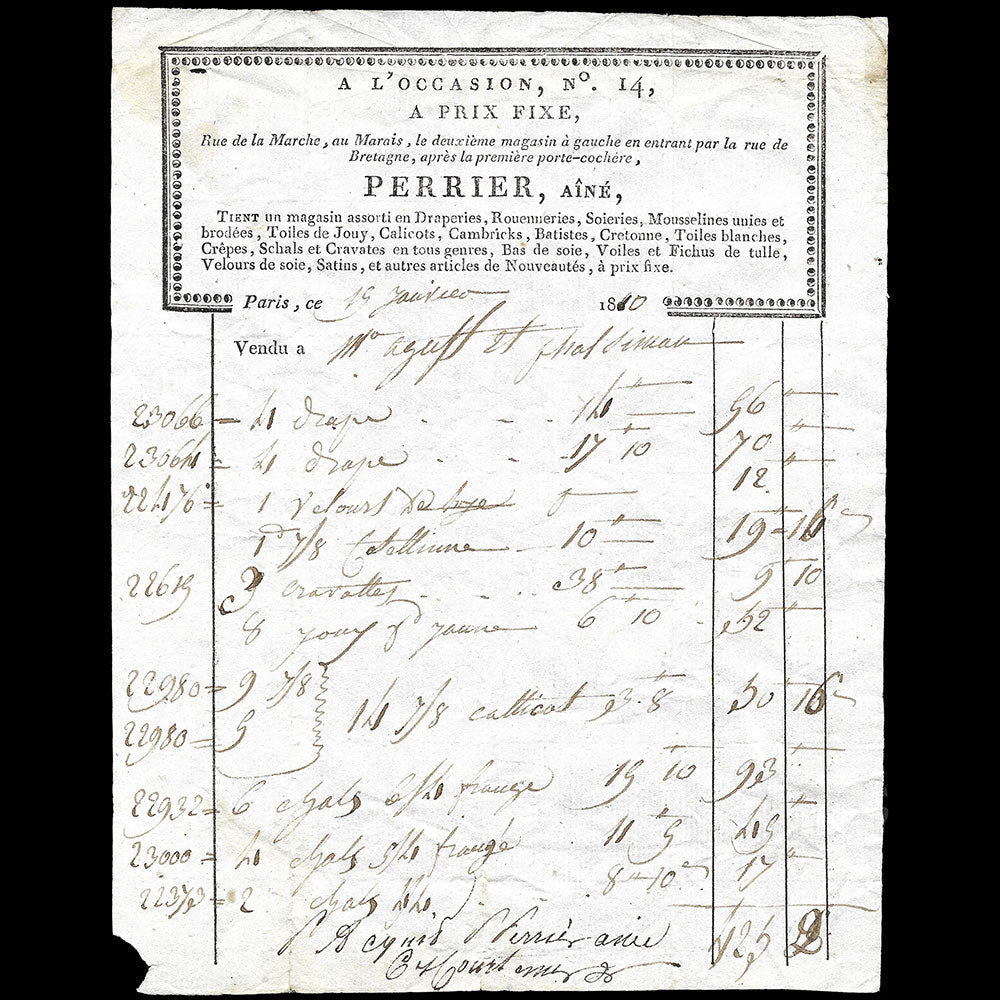 A L'OCCASION, Nº. 14,
A PRIX FIXE,
Rue de la Marche, au Marais, le deuxième magasin à gauche en entrant par la rue de
Bretagne, après la première porte-cochère,
PERRIER, AÎNÉ,
TIENT un magasin assorti en Draperies, Rouenneries, Soieries, Mousselines unies et
brodées, Toiles de Jouy, Calicots, Cambricks, Batistes, Cretonne, Toiles blanches,
Crêpes, Schals et Cravates en tous genres, Bas de soie, Voiles et Fichus de tulle,
Velours de soie, Satins, et autres articles de Nouveautés, à prix fixe.
Paris, ce 15 janvier 1810
Vendu a Mrs
23066 = 4 drape 14 " 56 "
23064 = 4 drape 17 " 10 70 "
22476 = 1 velours de soye 12 "
1 7/8 10 " 19 =
22615 3 cravattes 38 " 5 10
8 jouy jaune 6 " 10 52 "
22980 = 9 7/8
14 7/8 callicot 3 " 8 50
22980 = 5
22932 = 6 chals 6/4 frange 15 " 10 93 "
23000 = 4 chals 5/4 frangé 11 " 5 45 "
22373 = 2 chals 4/4 8 " 10 17 "
P Acquis Perrier ainé 425